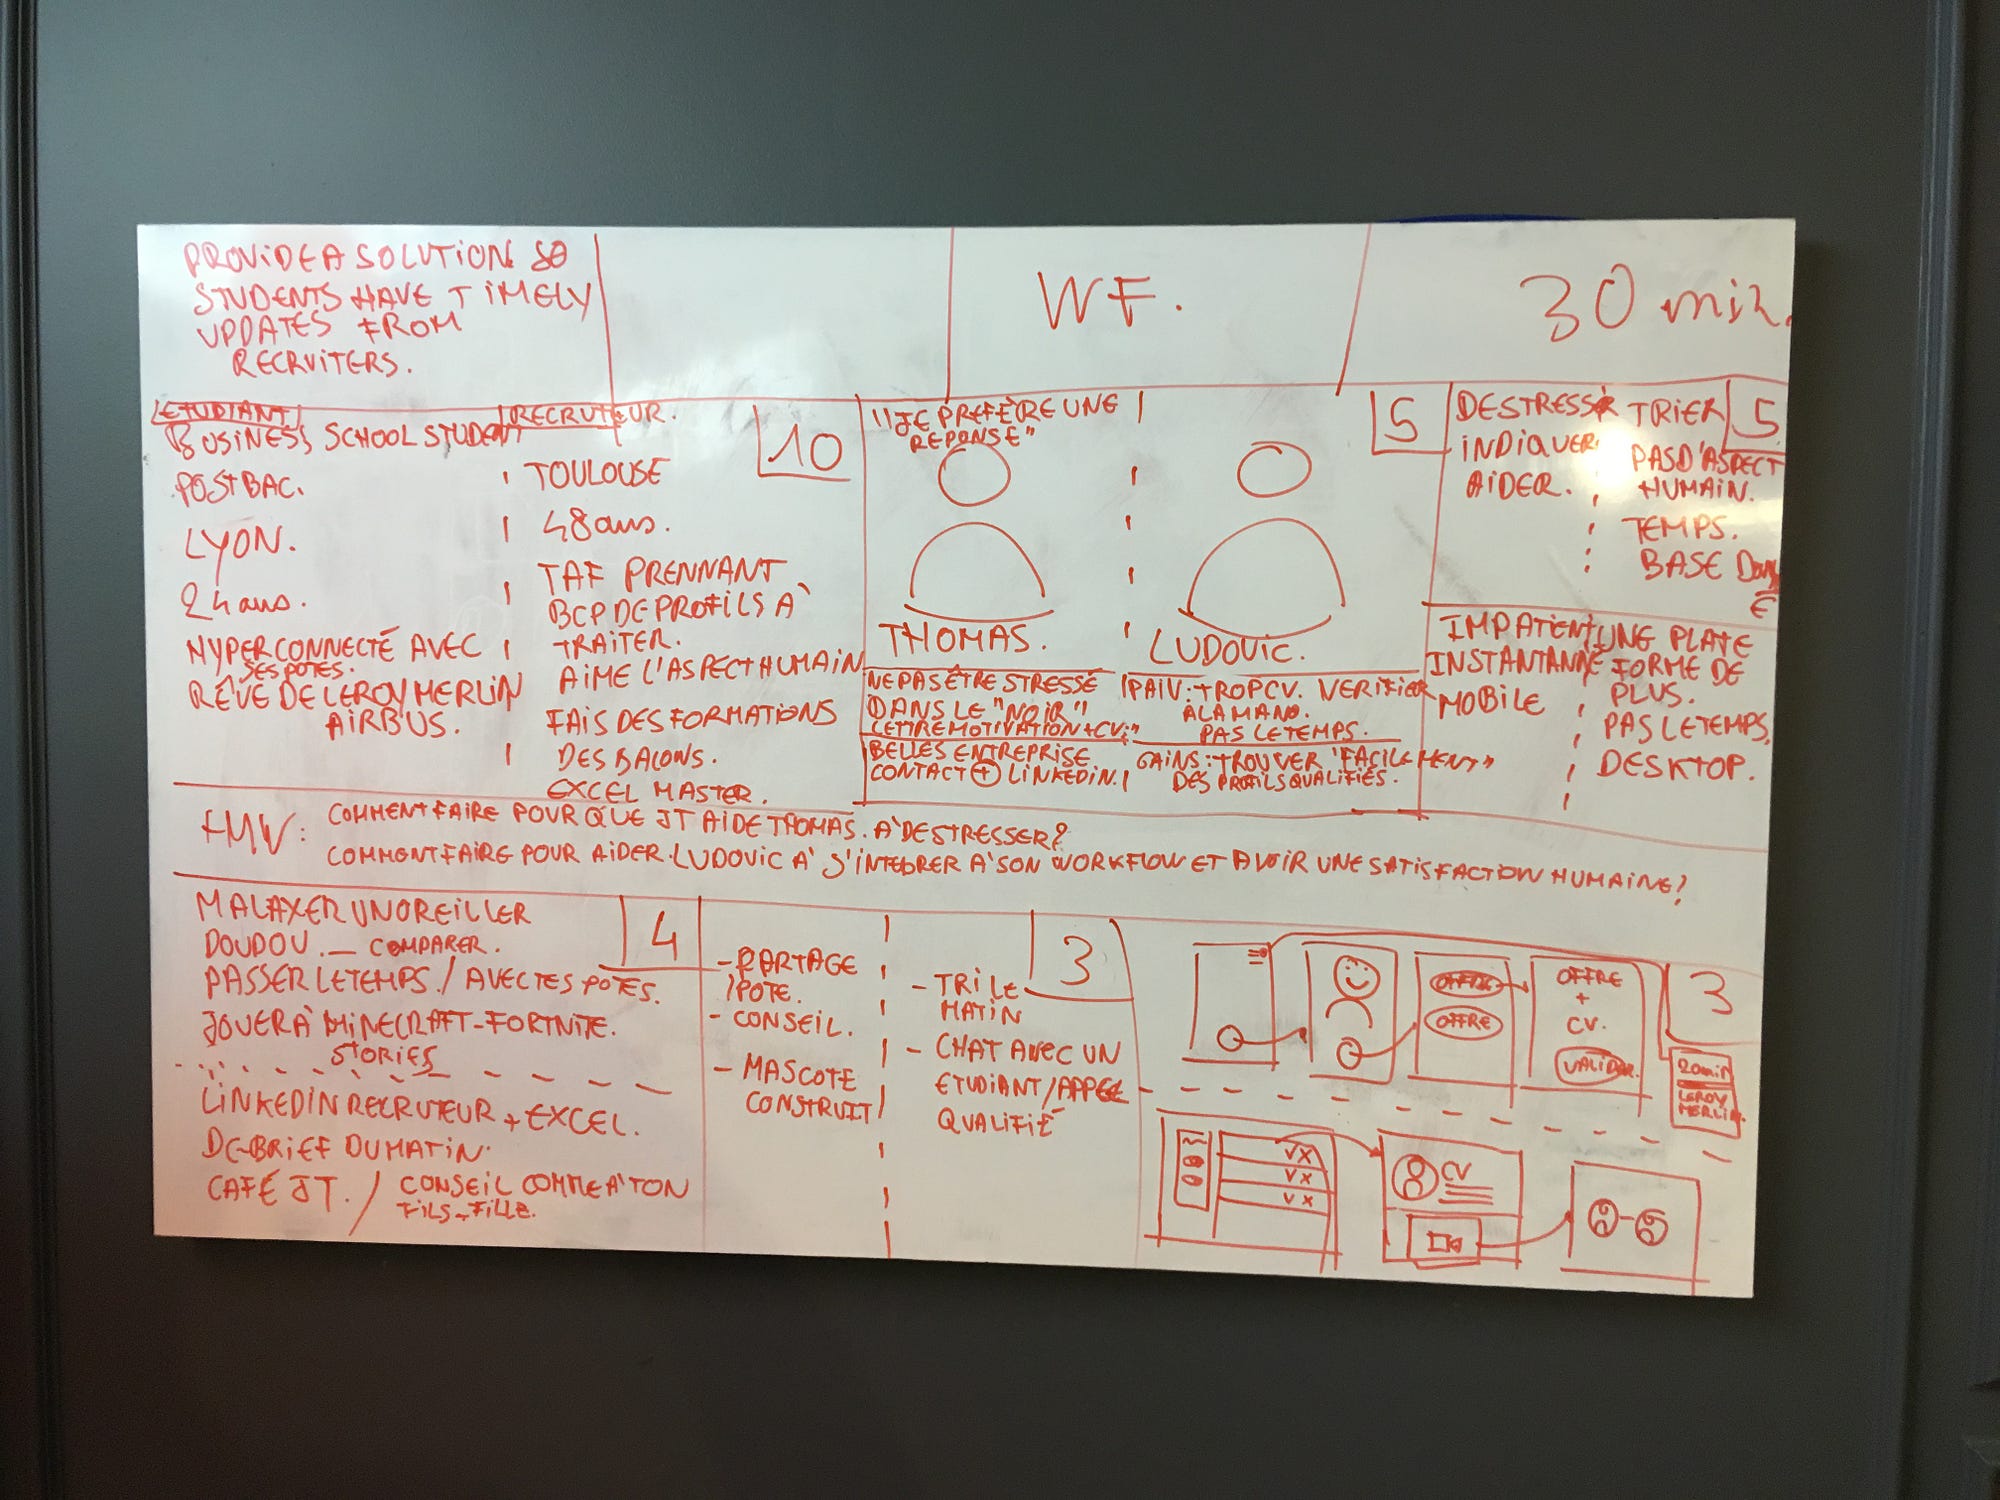 PROVIDE A SOLUTION SO
STUDENTS HAVE TIMELY
UPDATES FROM
RECRUITERS.
WF.
30 min.
ETUDIANT
BUSINESS SCHOOL STUDENT
POSTBAC.
LYON.
24 ans.
HYPERCONNECTÉ AVEC
SES POTES.
RÊVE DE LEROY MERLIN
AIRBUS.
RECRUTEUR.
10
TOULOUSE
48 ans.
TAF PRENNANT
BCP DE PROFILS À
TRAITER.
AIME L'ASPECT HUMAIN
FAIS DES FORMATIONS
DES BALONS.
EXCEL MASTER.
"JE PREFÈRE UNE
REPONSE"
THOMAS.
NE PAS ÊTRE STRESSÉ
DANS LE "NOIR"
LETTRE MOTIVATION + CV
BELLES ENTREPRISE
CONTACT + LINKEDIN.
5
LUDOVIC.
PAIV: TROP CV. VERIFIER
A LA MANO.
PAS LE TEMPS.
GAINS: TROUVER "FACILEMENT"
DES PROFILS QUALIFIÉS.
DESTRESSER
INDIQUER
AIDER.
TRIER
5
PAS D'ASPECT
HUMAIN.
TEMPS.
BASE
IMPATIENT
INSTANTANNÉ
MOBILE
UNE PLATE
FORME DE
PLUS.
PAS LE TEMPS.
DESKTOP.
HMW:
COMMENT FAIRE POUR QUE JT AIDE THOMAS. À DESTRESSER?
COMMENT FAIRE POUR AIDER LUDOVIC À S'INTEGRER À SON WORKFLOW ET AVOIR UNE SATISFACTION HUMAINE?
MALAXER UN OREILLER
DOUDOU. — COMPARER.
PASSER LE TEMPS. / AVEC TES POTES.
JOUER À MINECRAFT-FORTNITE.
STORIES
4
LINKEDIN RECRUTEUR + EXCEL.
DE-BRIEF DU MATIN.
CAFÉ JT. / CONSEIL COMME A TON
FILS-FILLE.
- PARTAGE
/POTE.
- CONSEIL.
- MASCOTE
CONSTRUIT
3
- TRI LE
MATIN
- CHAT AVEC UN
ETUDIANT/APPEL
QUALIFIÉ
3
OFFRE
OFFRE
OFFRE
+
CV.
VALIDER.
20min
LEROY
MERLIN.
V X
V X
V X
CV